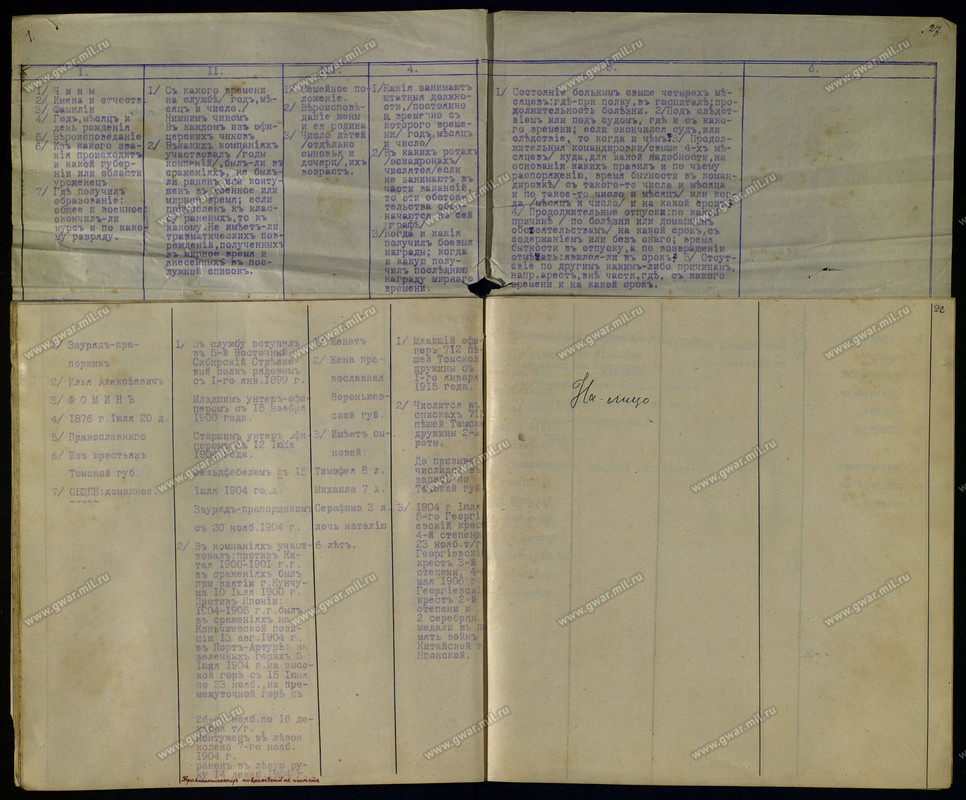 1.
27
I.
II.
4.
5.
6.
1/ Ч и н ы
2/ Имена и отчеств.
3/ Фамиліи
4/ Годъ, мѣсяцъ и
день рожденія
5/ Вѣроисповѣданіе
6/ Изъ какого зва-
нія происходитъ
и какой губер-
ніи или области
уроженецъ
7/ Гдѣ получилъ
образованіе:
общее и военное:
окончилъ-ли
курсъ и по како-
му разряду.
1/ Съ какого времени
на службѣ/ годъ, мѣ-
сяцъ и число./
Нижнимъ чиномъ
Въ каждомъ изъ офи-
церскихъ чиновъ
2/ Въкакихъ компаніяхъ
участвовалъ /годы
компаній/, былъ-ли въ
сраженіяхъ, не былъ-
ли раненъ или конту-
женъ въ военное или
мирное время; если
причисленъ къ клас-
су раненыхъ, то къ
какому. Не имѣетъ-ли
травматическихъ пов-
режденій, полученныхъ
въ мирное время и
внесенныхъ въ пос-
лужной списокъ.
1/ Семейное по-
ложеніе.
2/ Вѣроисповѣ-
даніе жены
и ея родина
3/ Число дѣтей
/отдѣльно
сыновья и
дочери/, ихъ
возрастъ.
1/ Какія занимаютъ
штатныя должно-
сти, /постоянно
и временно съ
котораго време-
ни/ годъ, мѣсяцъ
и число/
2/ Въ какихъ ротахъ
/эскадронахъ/
числятся/если
не занимаютъ въ
части вакансій,
то эти обстоя-
тельства обоз-
начаются въ сей
графѣ/
3/ Когда и какія
получилъ боевыя
награды; когда
и какую полу-
чилъ послѣднюю
награду мирнаго
времени.
1/ Состояніе больнымъ свыше четырехъ мѣ-
сяцевъ: гдѣ-при полку, въ госпиталѣ; про-
должительность болѣзни. 2/Подъ слѣдст-
віемъ или подъ судомъ, гдѣ и съ како-
го времени; если окончился судъ, или
слѣдствіе, то когда и чѣмъ. 3/ Продол-
жительныя командировки/свыше 4-хъ мѣ-
сяцевъ/ куда, для какой надобности, на
основаніи какихъ правилъ и по чьему
распоряженію, время бытности въ коман-
дировкѣ/ съ такого-то числа и мѣсяца
и по такое-то число и мѣсяцъ/ или ког-
да /мѣсяцъ и число/ и на какой срокъ.
4/ Продолжительные отпуска: по какой
причинѣ / по болѣзни или домашнимъ
обстоятельствамъ/ на какой срокъ, съ
содержаніемъ или безъ онаго; время
бытности въ отпуску, а по возвращеніи
отмѣтать: явился-ли въ срокъ. 5/ Отсут-
свіе по другимъ какимъ-либо причинамъ,
напр. арестъ, внѣ части, гдѣ, съ какого
времени и на какой срокъ.
22
Зауряд-пра-
порщикъ
2/ Илья Алексѣевичъ
3/ Ф О М И Н Ъ
4/ 1876 г. Іюля 20 д.
5/ Православнаго
6/ Изъ крестьянъ
Томской губ.
7/ ОБЩЕЕ: домашнее.
1/ Въ службу вступилъ
въ 5-й Восточный
Сибирскій Стрѣлко-
вый полкъ рядовымъ
съ 1-го янв. 1899 г.
Младшимъ унтеръ-офи-
церомъ съ 15 ноября
1900 года.
Старшимъ унтеръ офи-
церомъ съ 12 Іюня
года.
Фельдфебелемъ съ 15
Іюля 1904 года.
Заурядъ-прапорщикомъ
съ 20 нояб. 1904 г.
2/ Въ компаніяхъ участ-
вовалъ: противъ Ки-
тая 1900-1901 г.г.
въ сраженіяхъ былъ
при взятіи г. Хунчу-
ма 10 Іюля 1900 г.
Противъ Японіи:
1904-1905 г.г. былъ
въ сраженіяхъ на
Киньчжевской пози-
ціи 13 авг. 1904 г.
въ Портъ-Артурѣ: на
зеленныхъ горахъ 5
Іюня 1904 г. на высо-
кой горѣ съ 15 Іюня
по 23 нояб., на про-
межуточной горѣ съ
26-го нояб. по 16 де-
кабря т/г.
Контуженъ въ лѣвое
колѣно 7-го нояб.
1904 г.
раненъ въ лѣвую ру-
ку 14 декаб. 1904 г.
1/ Женатъ
2/ Жена пра-
вославная
Вороньжев-
ской губ.
3/ Имѣетъ сы-
новей:
Тимофея 8 л.
Михаила 7 л.
Серафима 3 л.
дочь наталію
6 лѣтъ.
1/ Младшій офи-
церъ 712 пѣ-
шей Томской
дружины съ
1-го января
1915 года.
2/ Числится въ
спискахъ 712
пѣшей Томской
дружины 2-й
роты.
До призыва
числился въ
запасѣ по
Томской губ.
3/ 1904 г. Іюля
5-го Георгі-
евскій крестъ
4-й степени
23 нояб. т/г.
Георгіевскій
крестъ 3-й
степени, 4-
мая 1906 г.
Георгіевскій
крестъ 2-й
степени и
2 серебрян.
медали въ па-
мять войнъ
Китайской и
Японской.
На-лицо
www.gwar.mil.ru